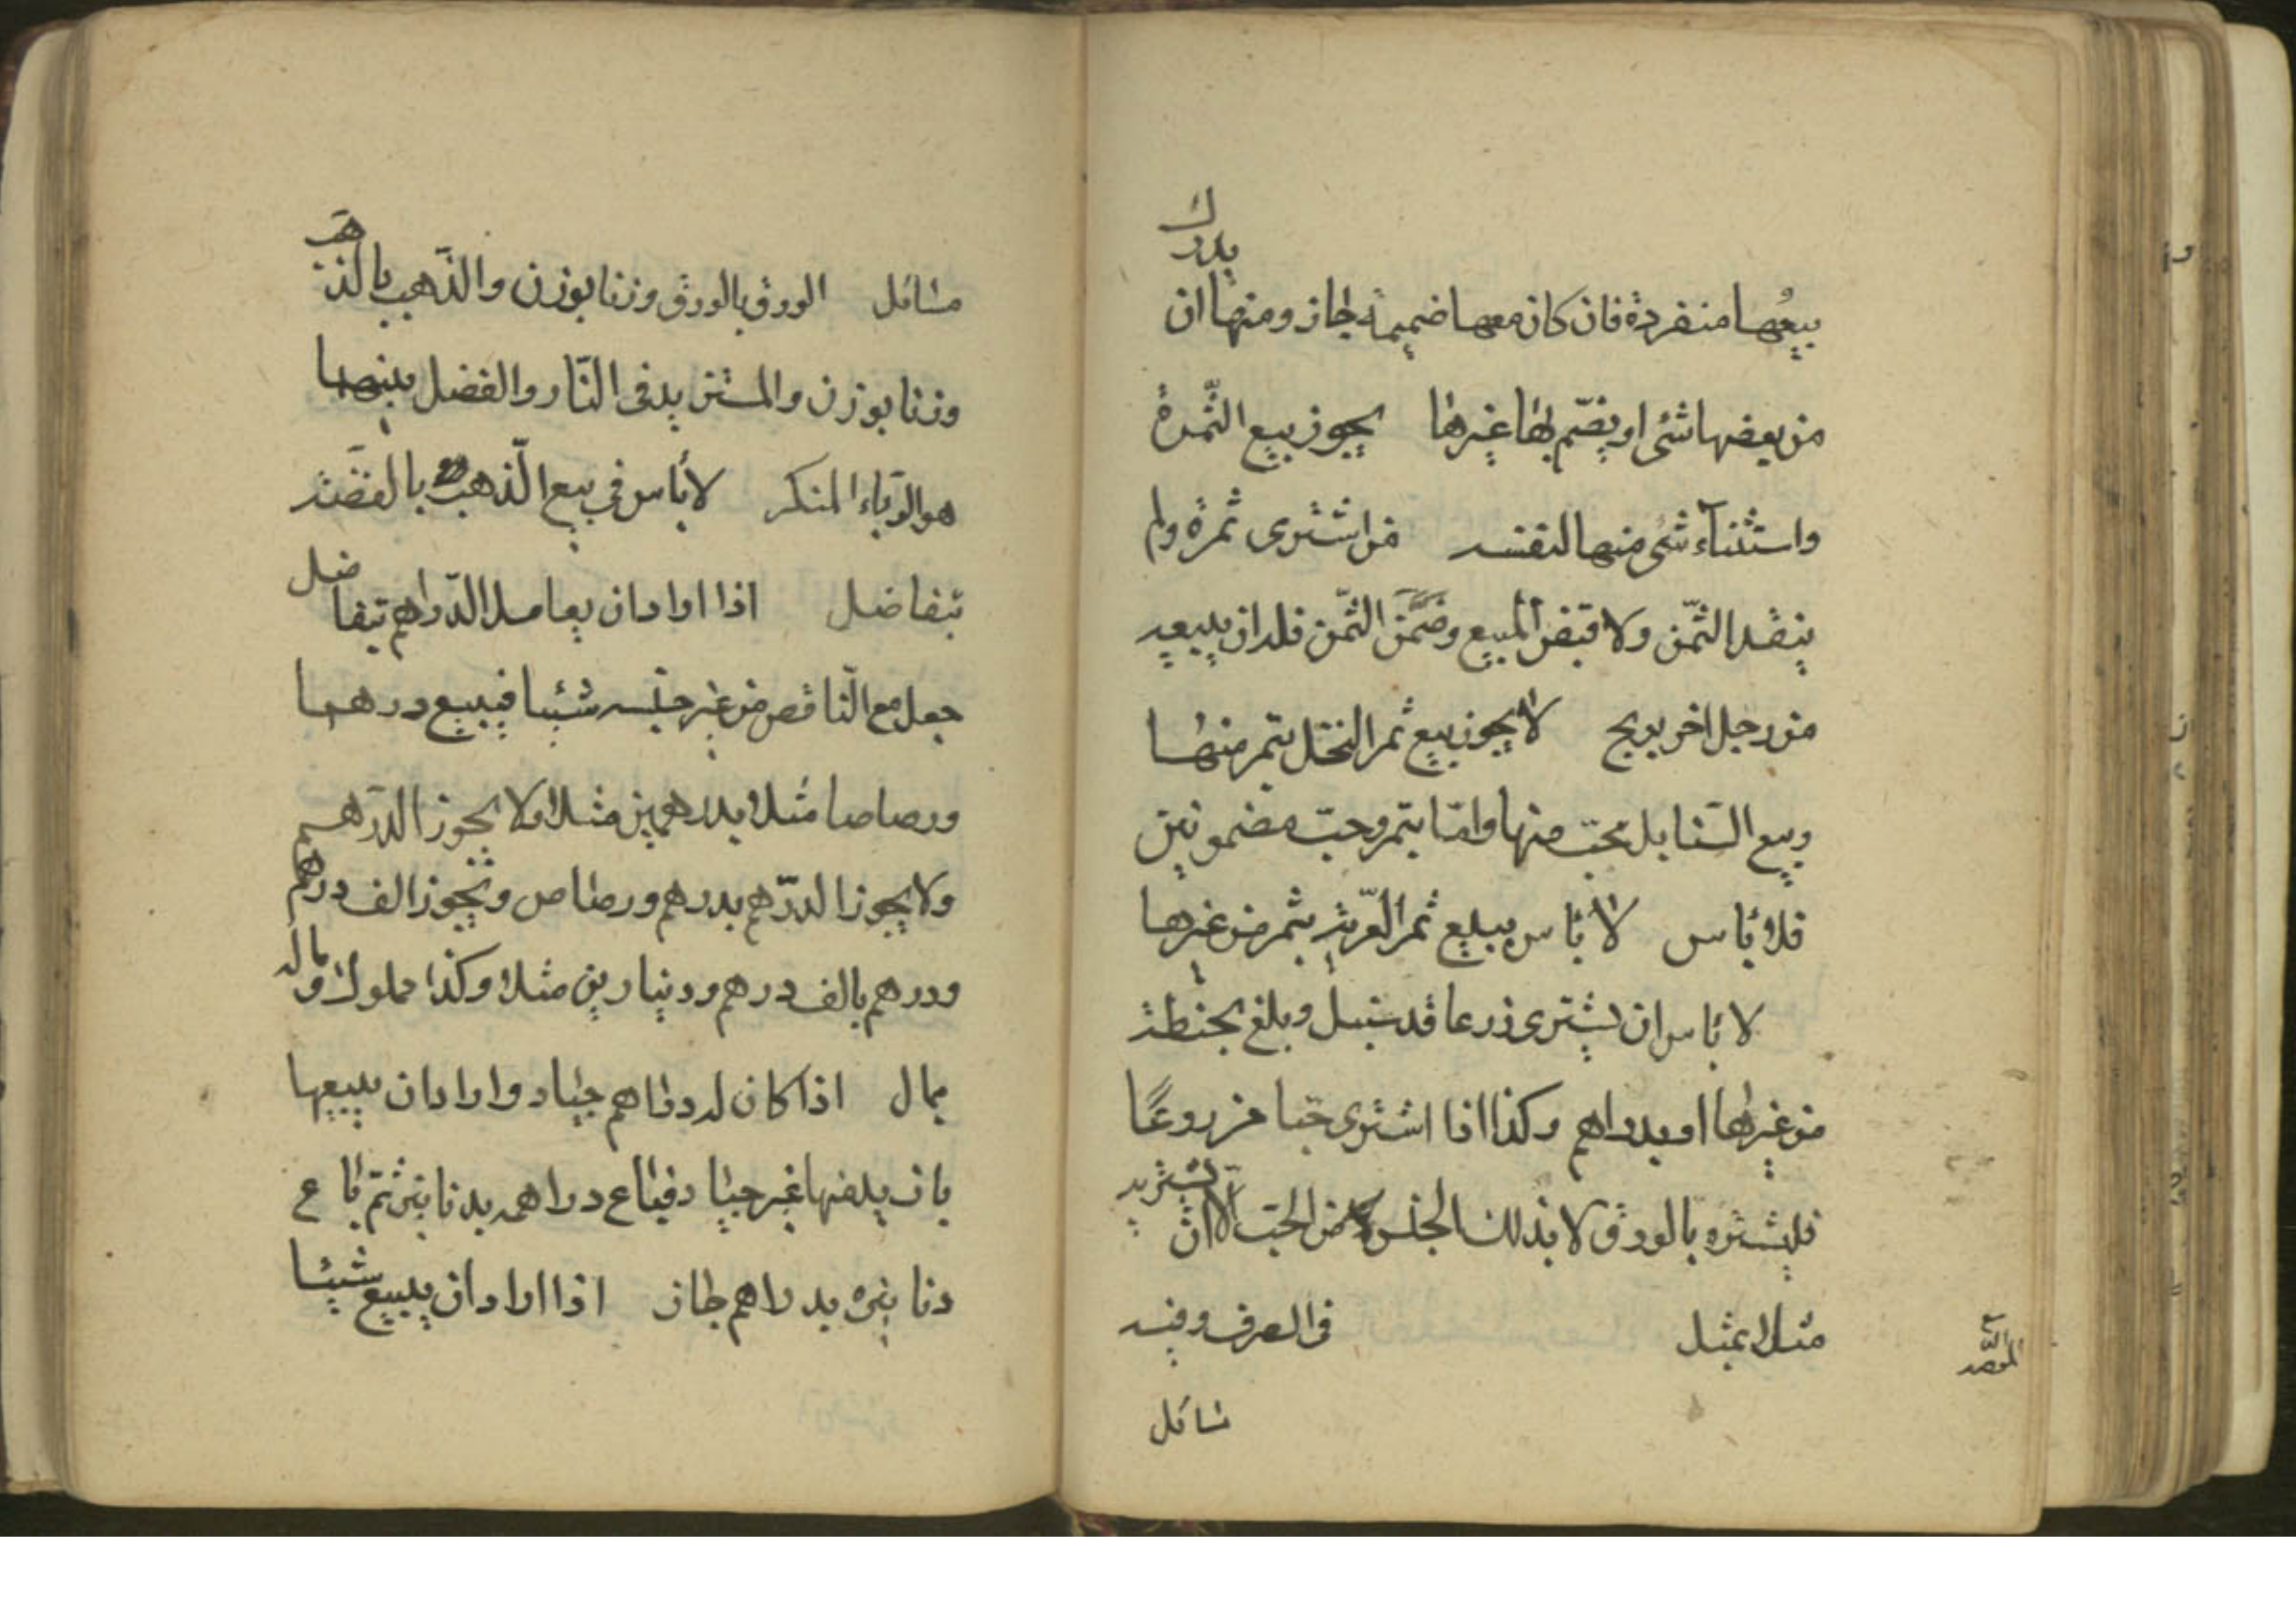 بيعها منفردة فان كان معها ضميمة جاز ومنها ان يدرك
من بعضها شئ او يضم بها غيرها يجوز بيع الثمرة
واستثناء شئ منها لنفسه من اشترى ثمرة ولم
ينقد الثمن ولا قبض المبيع وضمن الثمن فله ان يبيعه
من رجل اخر بربح لا يجوز بيع ثمر النخل بتمر منها
وبيع السنابل بحب منها واما بتمر وحب مضمونين
فلا بأس لا بأس ببيع ثمر العرية بثمر من غيرها
لا بأس ان يشترى زرعا قد سنبل وبلغ بحنطة
من غيرها او بدراهم وكذا اذا اشترى حبا مزروعًا
فليشتره بالورق لا بذلك الجنس من الحب الا ان يشتريه
مثلا بمثل في الصرف وفيه
مسائل
مسائل الورق بالورق وزنا بوزن والذهب بالذهب
وزنا بوزن والمستزيد في النار والفضل بينهما
هو الرباء المنكر لا بأس في بيع الذهب بالفضة
بتفاضل اذا اراد ان يعامل الدراهم بتفاضل
جعل مع الناقص من غير جنسه شيئا فيبيع درهما
ورصاصا مثلا بدرهمين مثلا ولا يجوز الدرهم
ولا يجوز الدرهم بدرهم ورصاص ويجوز الف درهم
ودرهم بالف درهم ودينارين مثلا وكذا مملوك وماله
بمال اذا كان له دراهم جياد واراد ان يبيعها
دراهمه بدنانير ثم باع
دنانيره بدراهم جاز اذا اراد ان يبيع شيئا